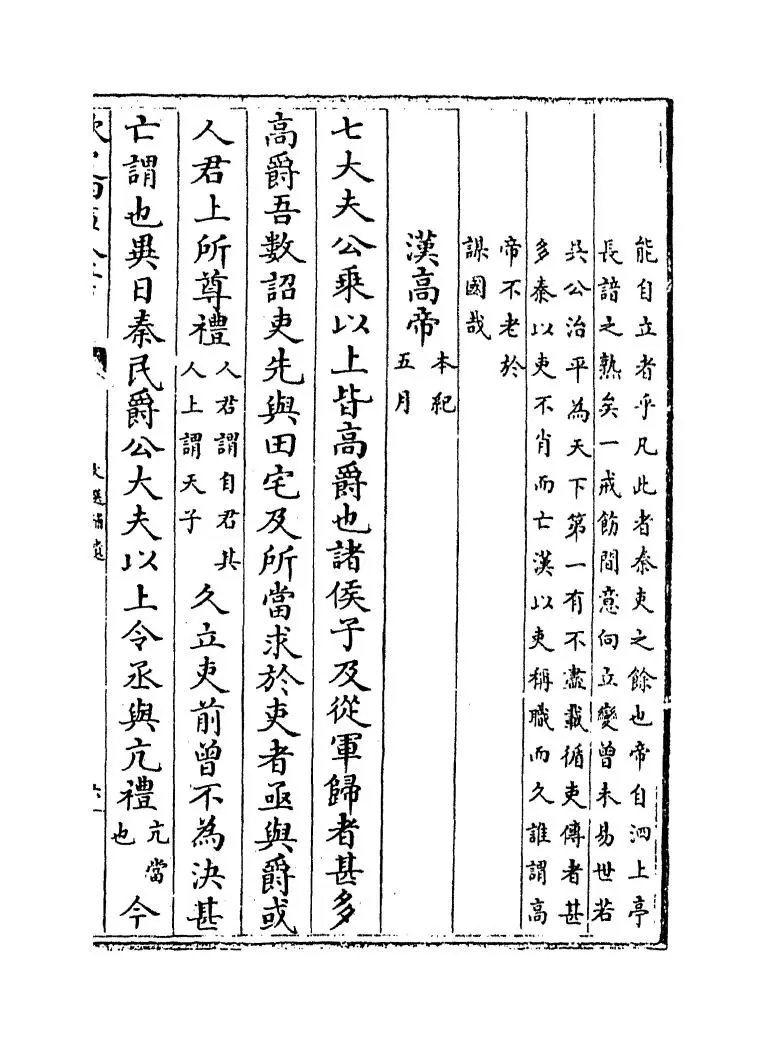 能自立者乎凡此者秦吏之餘也帝自泗上亭
長諳之熟矣一戒飭間意向立變曾未易世若
吳公治平為天下第一有不盡載循吏傳者甚
多秦以吏不肖而亡漢以吏稱職而久誰謂高
帝不老於
謀國哉
漢高帝
本紀
五月
七大夫公乘以上皆高爵也諸侯子及從軍歸者甚多
高爵吾數詔吏先與田宅及所當求於吏者亟與爵或
人君上所尊禮人君謂自君其人上謂天子久立吏前曾不為決甚
亡謂也異日秦民爵公大夫以上令丞與亢禮亢當也今
文選補遺